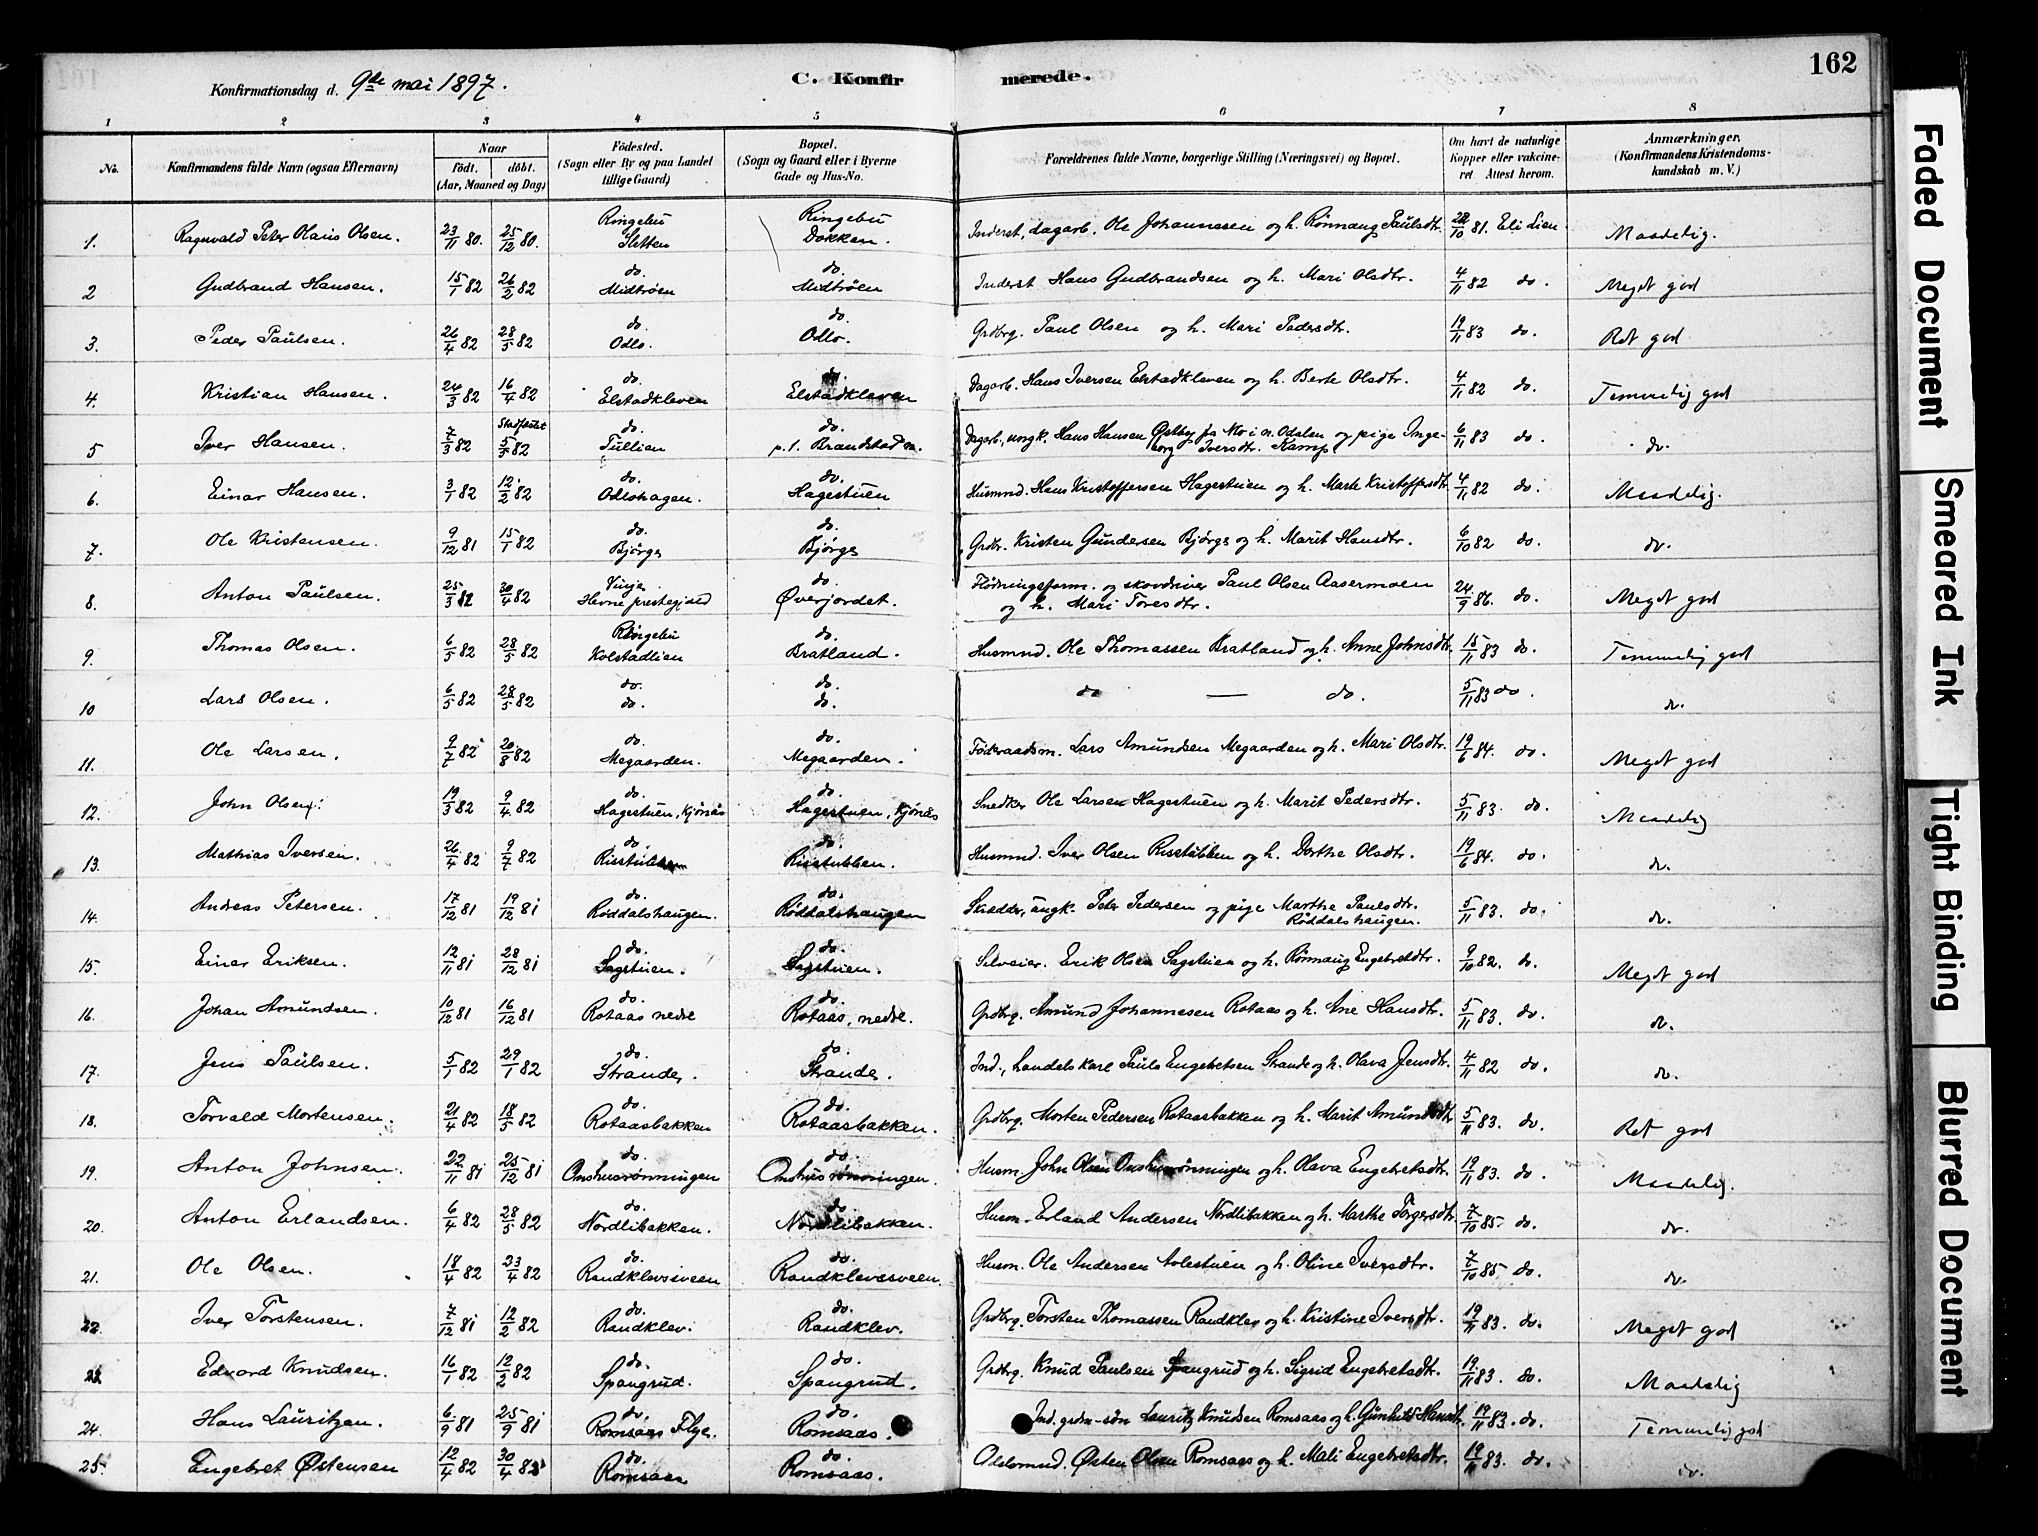 162
Konfirmationsdag d. 9de mai 1897.
C. Konfirmerede.
1 2 3 4 5 6 7 8
No.
Konfirmandens fulde Navn (ogsaa Efternavn)
Naar
födt. döbt.
(Aar, Maaned og Dag)
Födested.
(Sogn eller By og paa Landet
tillige Gaard)
Bopæl.
(Sogn og Gaard eller i Byerne
Gade og Hus-No.
Forældrenes fulde Navne, borgerlige Stilling (Næringsvei) og Bopæl.
Om havt de naturlige
Kopper eller vakcine-
ret Attest herom.
Anmærkninger.
(Konfirmandens Kristendoms-
kundskab m. V.)
1. Ragnvald Peter Olaus Olsen. 23/11 80. 25/12 80. Ringebu Sletten Ringebu Dokken. Inderst, dagarb. Ole Johannesen og h. Rønnaug Paulsdtr. 28/10 81. Eli Lien Maadelig.
2 Gudbrand Hansen. 15/1 82 26/2 82 do. Midtröen do. Midtröen Inderst Hans Gudbrandsen og h. Mari Olsdtr. 4/11 82 do. Meget god
3. Peder Paulsen. 26/4 82 28/5 82 do. Odlo. do. Odlo. Grdbrg. Paul Olsen og h. Mari Pedersdtr. 19/11 83 do. Ret god
4. Kristian Hansen. 24/3 82 16/4 82 do. Elstadkleven do. Elstadkleven Dagarb. Hans Iversen Elstadkleven og h. Berte Olsdtr. 4/11 82 do. Temmelig god
5 Iver Hansen. 7/3 82 Stadfæstet 5/5 82 do. Tullien do. p.t. Brandstad n. Dagarb., ungk. Hans Hansen Østby fs Mo i n. Odalen og pige Inge-
borg Iversdtr. Kamp 6/11 83 do. do.
6. Einar Hansen. 3/1 82 12/2 82 do. Odlohagen. do. Hagestuen Husmnd. Hans Kristoffersen Hagestuen og h. Marte Kristoffersdtr. 4/11 82 do. Maadelig.
7. Ole Kristensen. 9/12 81 15/1 82 do. Bjørge do. Bjørge Grdbr. Kristen Gundersen Bjørge og h. Marit Hansdtr. 6/10 82 do. do.
8. Anton Paulsen. 25/3 82 30/4 82 Vinje Hevne prestegjeld do. Øverjordet. Flødningsform. og skovdriver Paul Olsen Aasermoen
og h. Mari Toresdtr. 24/9 86. do. Meget god
9. Thomas Olsen. 6/5 82 28/5 82 Ringebu Kolstadlien do. Bratland. Husmnd. Ole Thomassen Bratland og h. Anne Johnsdtr. 15/11 83 do. Temmelig god
10 Lars Olsen. 6/5 82 28/5 82 do. do. do. do. do — do. 5/11 83 do. do.
11. Ole Larsen. 9/7 82 20/8 82 do. Megaarden. do. Megaarden. Föderaadsm. Lars Amundsen Megaarden og h. Mari Olsdtr. 19/6 84. do. Meget god
12. John Olsen. 19/3 82 9/4 82 do. Hagestuen, Kjönås do. Hagestuen, Kjönås Snedker Ole Larsen Hagestuen og h. Marit Pedersdtr. 5/11 83. do. Maadelig
13. Mathias Iversen. 26/4 82 9/7 82 do. Risstubben do. Risstubben. Husmnd. Iver Olsen Risstubben og h. Dorthe Olsdtr. 19/6 84. do. do.
14. Andreas Petersen. 17/12 81 19/12 81 do. Røddalshaugen. do. Røddalshaugen Skrædder, ungk. Peter Pedersen og pige Marthe Paulsdtr.
Røddalshaugen. 5/11 83. do. do.
15. Einar Eriksen. 12/11 81 28/12 81 do. Sagstuen. do. Sagstuen. Selveier. Erik Olsen Sagstuen og h. Rønnaug Engebretdtr. 9/10 82. do. Meget god
16. Johan Amundsen. 10/12 81 16/12 81 do. Rotaas nedre do. Rotaas, nedre. Grdbrg. Amund Johannesen Rotaas og h. Ane Hansdtr. 5/11 83. do. do.
17. Jens Paulsen. 5/1 82 29/1 82 do. Strande. do. Strande. Ind., Landelskarl Pauls Engebretsen Strande og h. Olava Jensdtr. 4/11 82 do. do.
18. Torvald Mortensen. 21/4 82 18/5 82 do. Rotaasbakken do. Rotaasbakken. Grdbrg. Morten Pedersen Rotaasbakken og h. Marit Amundsdtr 5/11 83. do. Ret god
19. Anton Johnsen. 22/11 81 25/12 81 do. Onshusrönningen do. Onshusrönningen. Husm. John Olsen Onshusrönningen og h. Olava Engebretsdtr. 19/11 83. do. Maadelig.
20. Anton Erlandsen. 6/4 82 28/5 82 do. Nordlibakken. do. Nordlibakken. Husm. Erland Andersen Nordlibakken og h. Marthe Torgersdtr. 7/10 85. do. do.
21. Ole Olsen. 18/4 82 23/4 82 do. Randklevsveen do. Randklevsveen. Husm. Ole Andersen Aolestuen og h. Oline Iversdtr. 7/10 85. do. do.
22. Iver Torstensen. 7/12 81 12/2 82 do. Randklev. do. Randklev. Grdbrg. Torsten Thomassen Randklev og h. Kristine Iversdtr. 19/11 83. do. Meget god
23 Edvard Knudsen. 16/1 82 12/2 82 do. Spangrud. do. Spangrud. Grdbrg. Knud Paulsen Spangrud og h. Sigrid Engebretsdtr. 19/11 83. do. Maadelig
24. Hans Lauritzen. 6/9 81 25/9 81 do. Romsaas Flye. do. Romsaas. Ind. grdm-søn Lauritz Knudsen Romsaas og h. Gunhild Hansdtr. 19/11 83. do. Temmelig god
25. Engebret Østensen 12/4 82 30/4 82 do. Romsaas do. Romsaas. Østen Olsen Romsaas og h. Mali Engebretsdtr. 19/11 83. do. do.
Faded Document
Smeared Ink
Tight Binding
Blurred Document